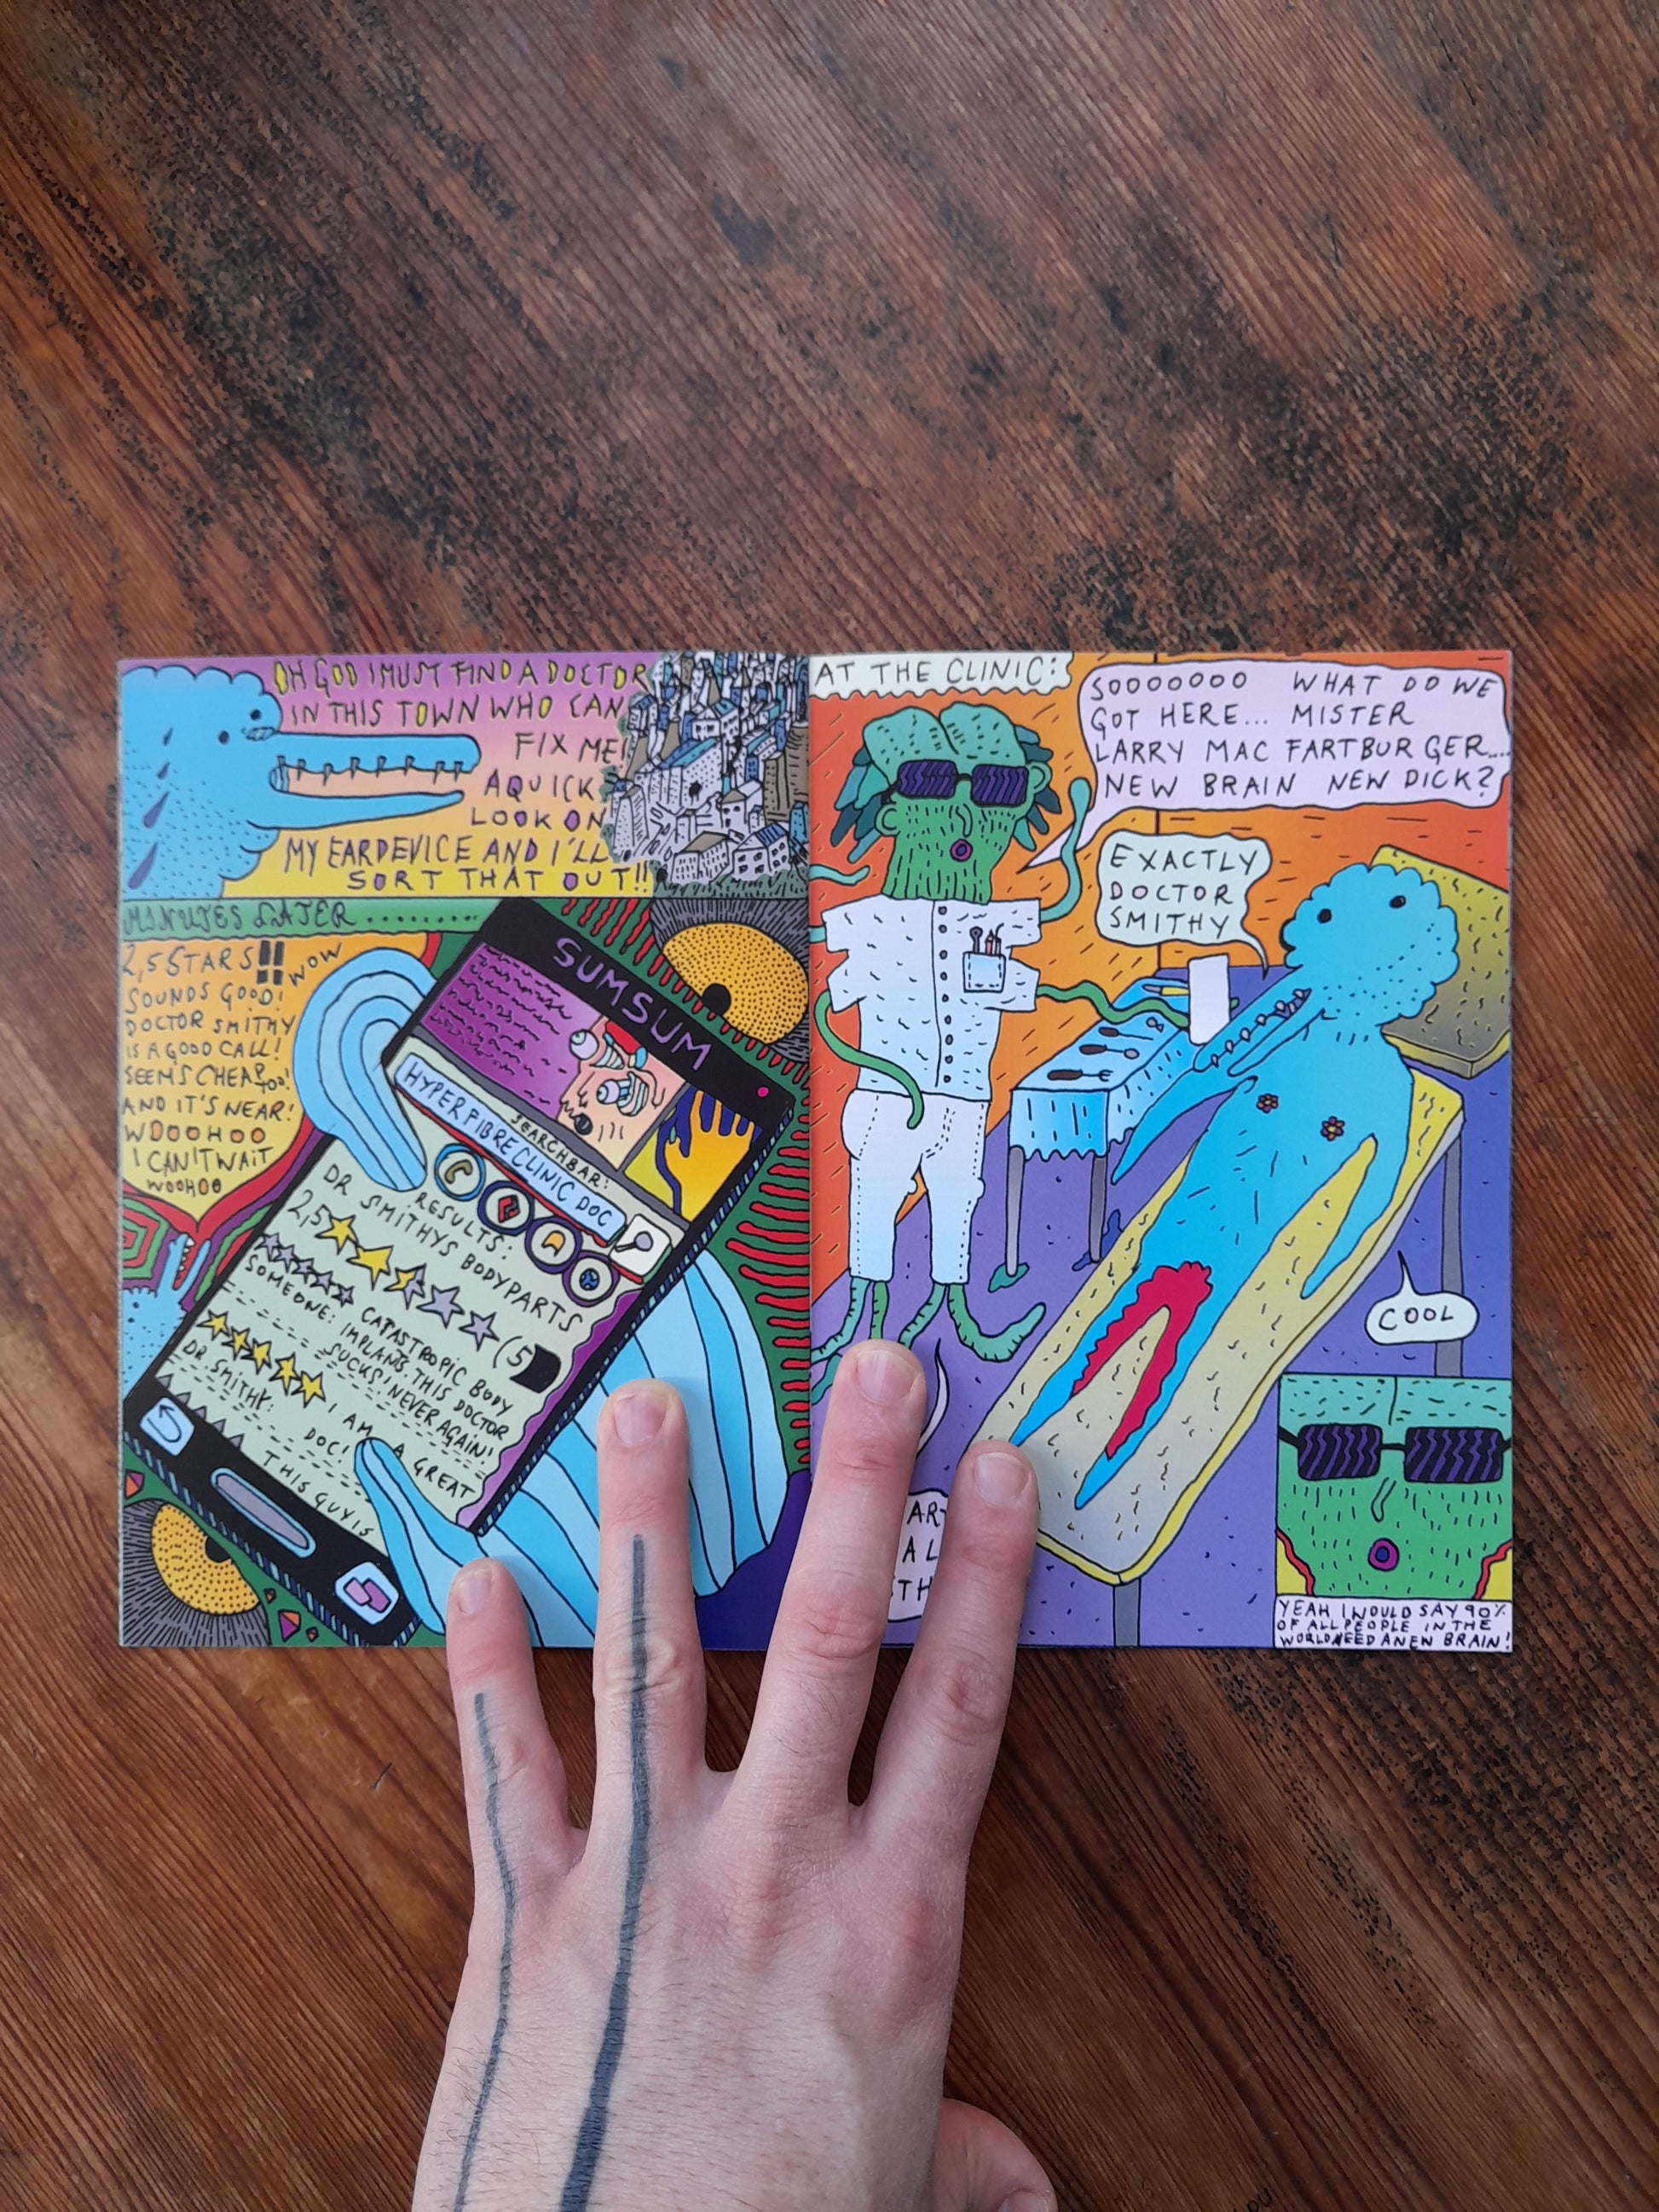 OH GOD I MUST FIND A DOCTOR
IN THIS TOWN WHO CAN
FIX ME!
A QUICK
LOOK ON
MY EARDEVICE AND I'LL
SORT THAT OUT!!
MINUTES LATER..........
2,5 STARS!! WOW
SOUNDS GOOD!
DOCTOR SMITHY
IS A GOOD CALL!
SEEMS CHEAP TOO!
AND IT'S NEAR!
WOOOHOO
I CAN'T WAIT
WOOHOO
SUMSUM
SEARCHBAR:
HYPERFIBRE CLINIC DOC
RESULTS:
DR SMITHYS BODYPARTS
2,5 (5
CATASTROPIC BODY
SOMEONE: IMPLANTS. THIS DOCTOR
SUCKS! NEVER AGAIN!
DR. SMITHY: I AM A GREAT
DOC!
THIS GUY IS
AT THE CLINIC:
SOOOOOOO WHAT DO WE
GOT HERE... MISTER
LARRY MAC FARTBURGER....
NEW BRAIN NEW DICK?
EXACTLY
DOCTOR
SMITHY
COOL
YEAH I WOULD SAY 90%
OF ALL PEOPLE IN THE
WORLD NEED A NEW BRAIN!